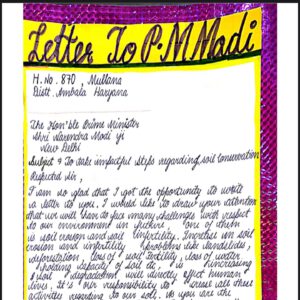 Letter To P.M Madi
H. No. 870, Mullana
Distt. Ambala Haryana
The Hon'ble Prime Minister
Shri Narendra Modi ji
New Delhi
Subject :- To take impactful steps regarding soil conservation
Respected sir,
I am so glad that I got the opportunity to write
a letter to you. I would like to draw your attention
that we will have to face many challenges with respect
to our environment in future, one of them
is soil erosion and soil infertility. Increase in soil
erosion and infertility problems like landslides,
deforestation, loss of soil fertility, loss of water
holding capacity of soil etc, is increasing
soil degradation will directly effect human
lives. It is our responsibility to all those
activities regarding to our soil. As you see the